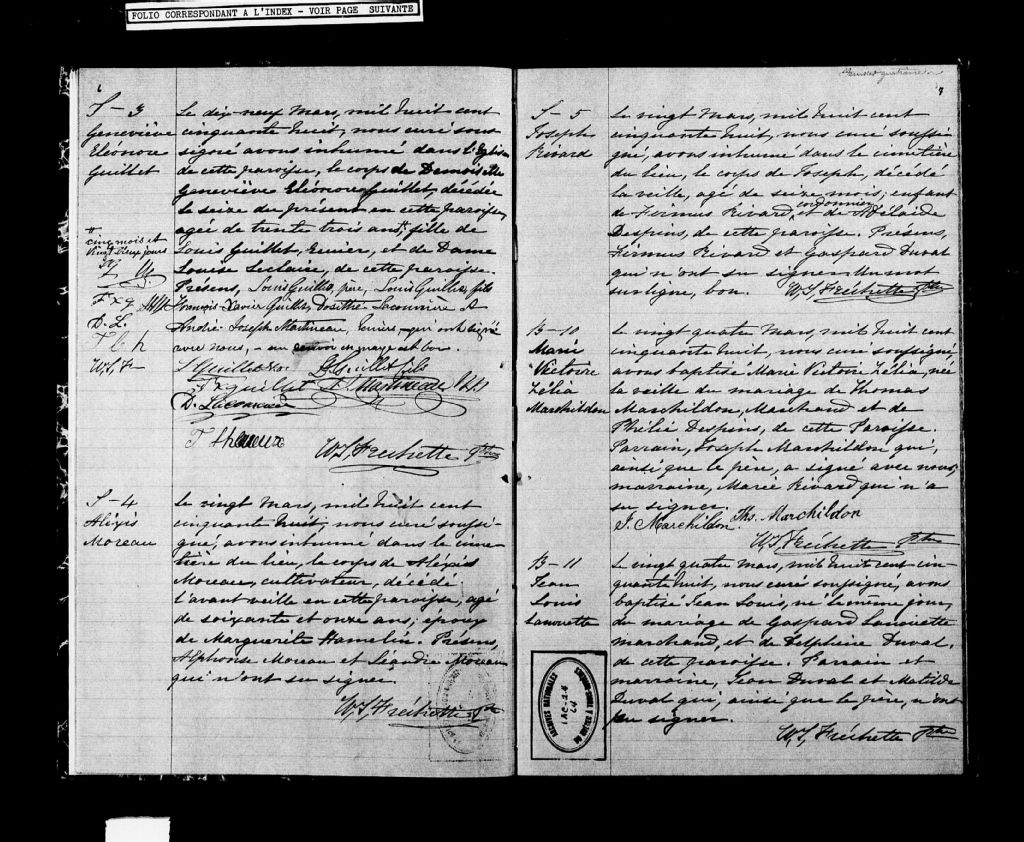 FOLIO CORRESPONDANT A L'INDEX - VOIR PAGE SUIVANTE
6
S - 3
Geneviève
Eléonore
Guillet
Le dix-neuf Mars, mil huit cent
cinquante huit, nous curé sous
signé avons inhumé dans l'Eglise
de cette paroisse, le corps de Demoiselle
Geneviève Eléonore Guillet, décédée
le seize du présent en cette paroisse,
agée de trente trois ans, fille de
Louis Guillet, Ecuier, et de Dame
Louise Leclaire, de cette paroisse.
Présens, Louis Guillet, père, Louis Guillet, fils
François-Xavier Guillet, Dosithé Lacourcière &
André Joseph Martineau, Ecuiers, qui ont signé
avec nous, - en marge est bon.
cinq mois et
vingt deux jours
L G
F x g
D. L.
W. S. F
L Guillet
L Guillet fils
F x guillet
A J Martineau
D. Lacourcière
W. S. Fréchette Ptre
S - 4
Aléxis
Moreau
Le vingt Mars, mil huit cent
cinquante huit, nous curé soussi-
gné, avons inhumé dans le cime-
tière du lieu, le corps de Aléxis
Moreau, cultivateur, décédé
l'avant veille en cette paroisse, agé
de soixante et onze ans; époux
de Marguerite Hamelin. Présens,
Alphonse Moreau et Léandre Moreau
qui n'ont su signer.
W. S. Fréchette Ptre
7
S - 5
Joseph
Rivard
Le vingt Mars, mil huit cent
cinquante huit, nous curé soussi-
gné, avons inhumé dans le cimetière
du lieu, le corps de Joseph, décédé
la veille, agé de seize mois, enfant
cordonnier
de Firmus Rivard, et de Adélaïde
Despins, de cette paroisse. Présens,
Firmus Rivard et Gaspard Duval
qui n'ont su signer. Un mot
sur ligne, bon. W. S. Fréchette Ptre
B - 10
Marie
Victoire
Zélia
Marchildon
Le vingt quatre Mars, mil huit cent
cinquante huit, nous curé soussigné,
avons baptisé Marie Victoire Zélia, née
la veille du mariage de Thomas
Marchildon, Marchand et de
Philie Despins, de cette Paroisse.
Parrain, Joseph Marchildon qui,
ainsi que le père, a signé avec nous,
marraine, Marie Rivard qui n'a
su signer.
J. Marchildon. Ths. Marchildon
W. S. Fréchette Ptre
B - 11
Jean
Louis
Lanouette
Le vingt quatre Mars, mil huit cent cin-
quante huit, nous curé soussigné, avons
baptisé Jean Louis, né le même jour,
du mariage de Gaspard Lanouette
marchand, et de Delphine Duval,
de cette paroisse. Parrain et
marraine, Jean Duval et Matilde
Duval qui, ainsi que le père, n'ont
su signer.
W. S. Fréchette Ptre
ARCHIVES NATIONALES